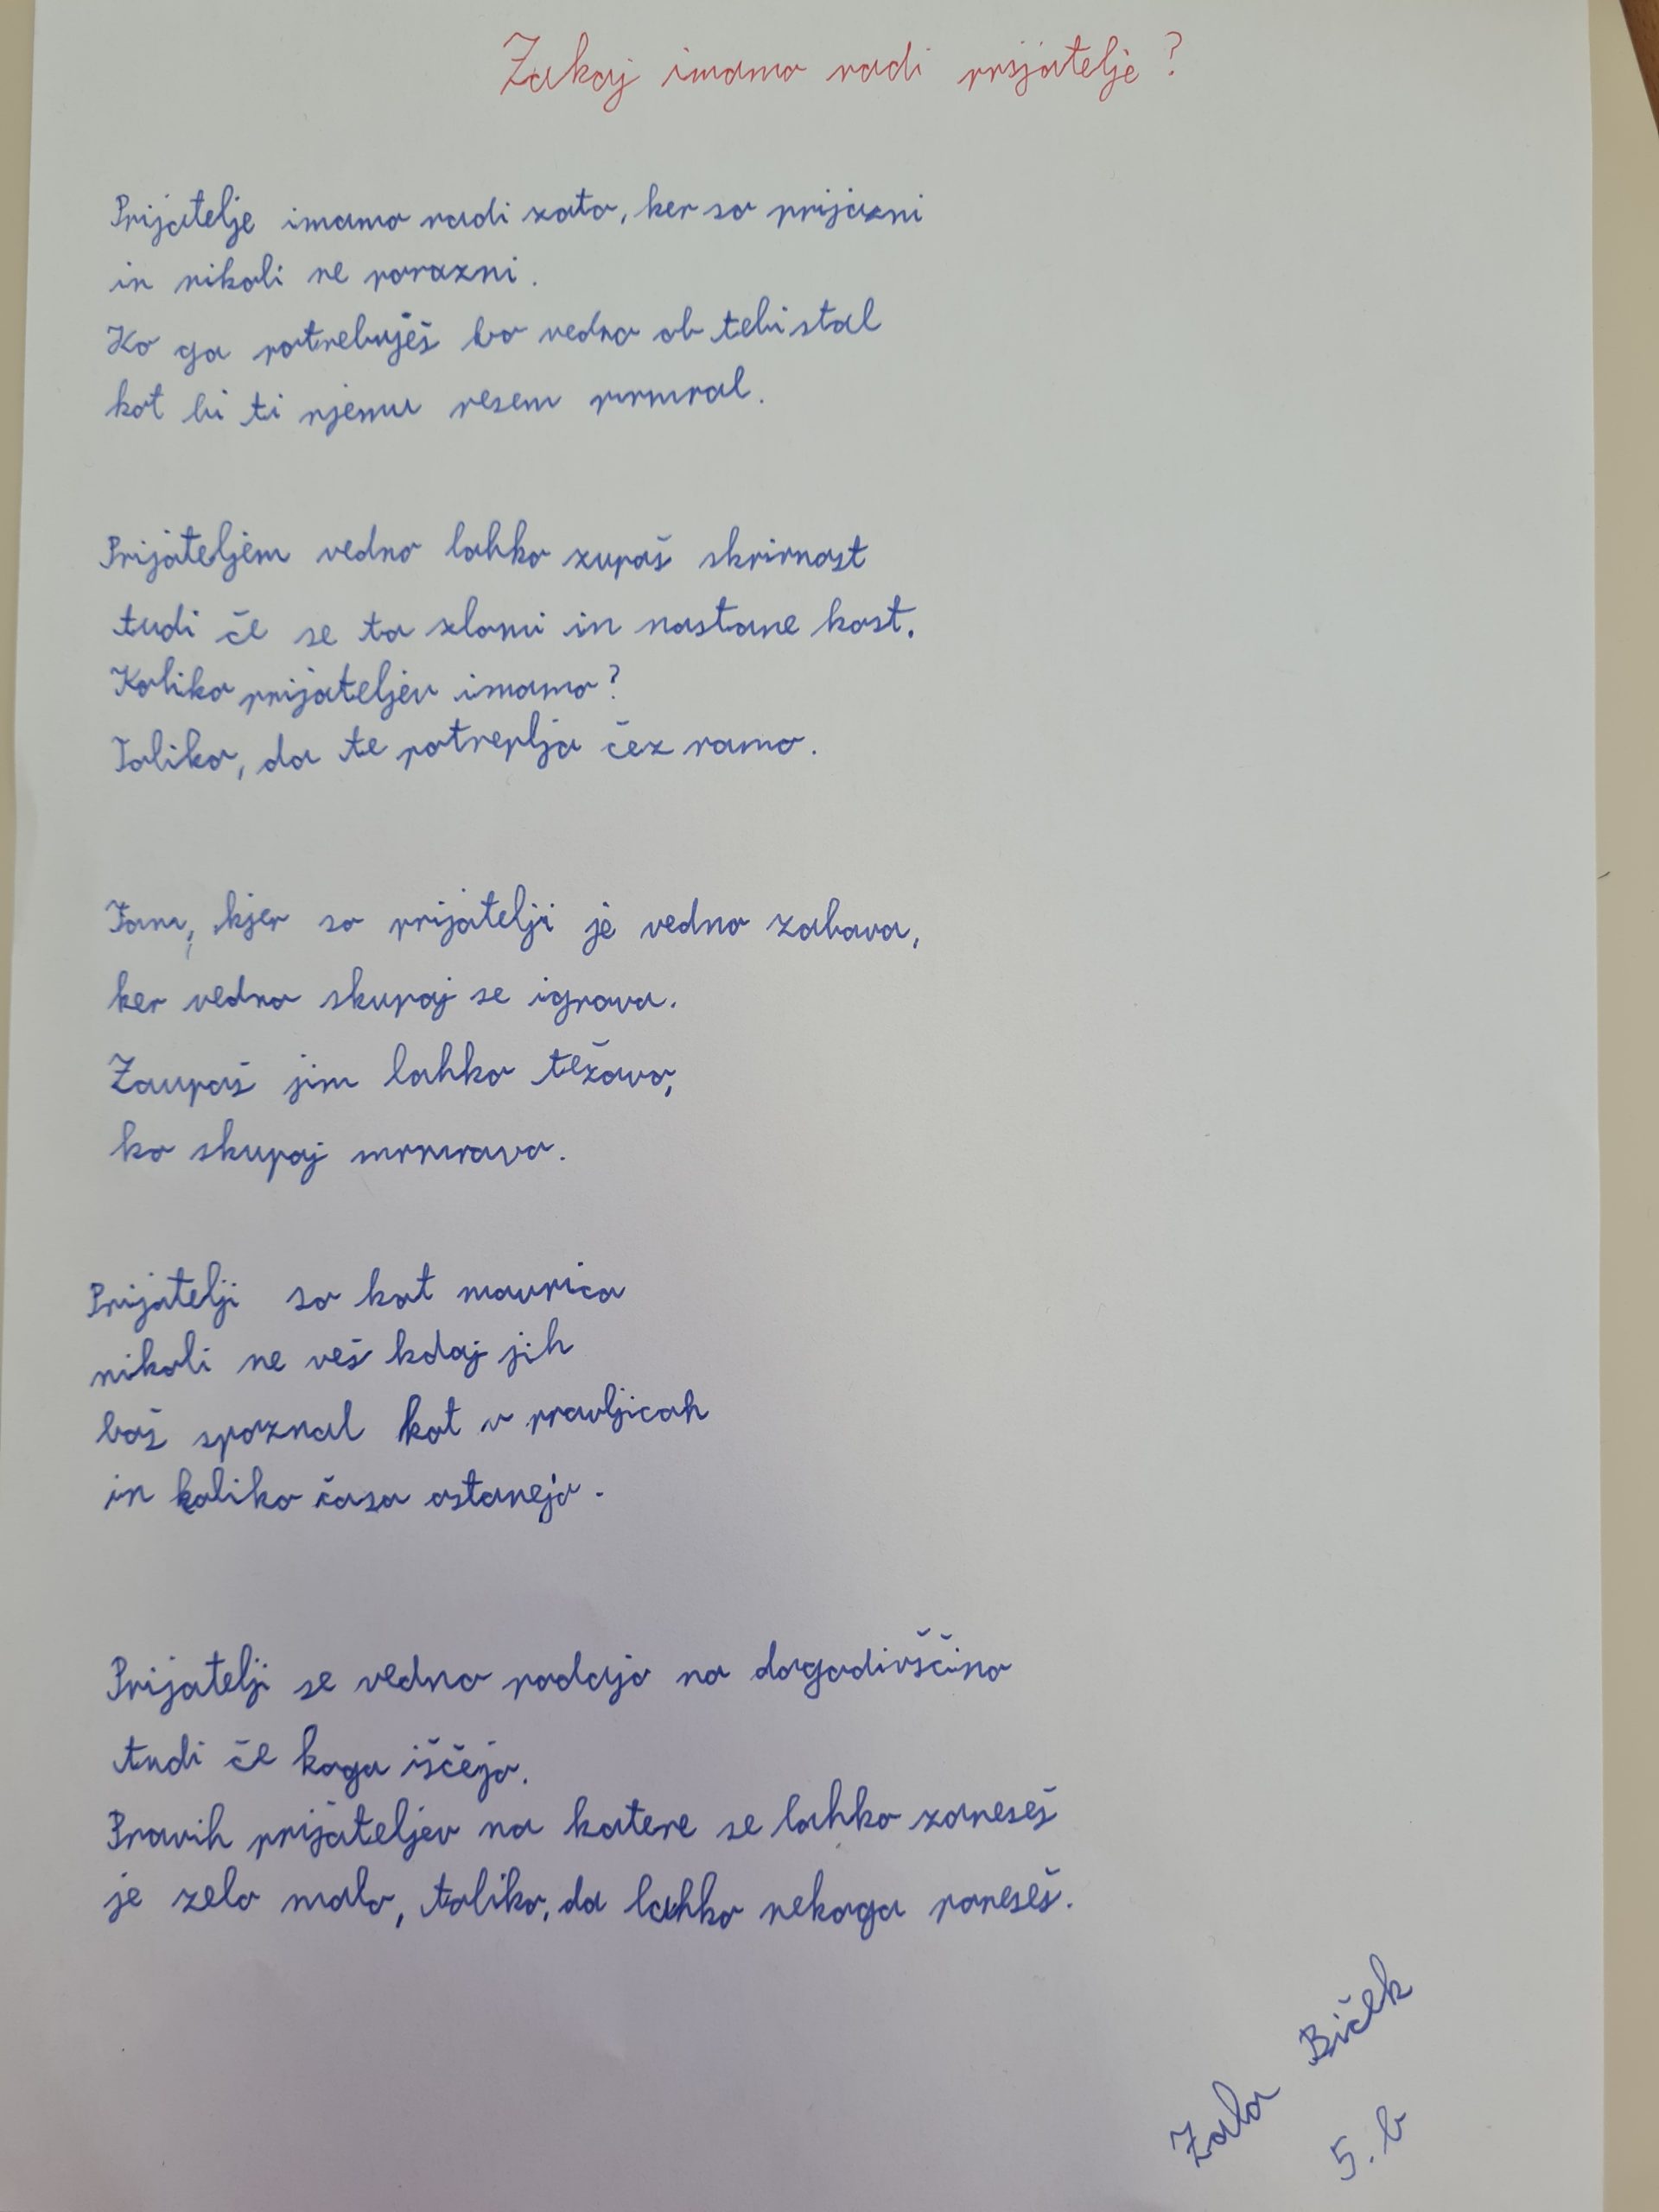 Zakaj imamo radi prijatelje?
Prijatelje imamo radi zato, ker so prijazni
in nikoli ne porazni.
Ko ga potrebuješ bo vedno ob tebi stal
kot bi ti njemu pesem
Prijateljem vedno lahko zupaš skrivnost
tudi če se ta zlomi in nastane kost.
Koliko prijateljev imamo?
Toliko, da te potreplja čez ramo.
Tam, kjer so prijatelji je vedno zabava,
ker vedno skupaj se igrava.
Zaupaš jim lahko težavo,
ko skupaj mrmravo.
Prijatelji so kot mavrica
nikoli ne veš kdaj jih
boš spoznal kot v pravljicah
in koliko časa ostanejo.
Prijatelji se vedno podajo na dogodivščino
tudi če koga iščejo.
Pravih prijateljev na katere se lahko zaneseš
je zelo malo, toliko, da lahko nekoga poneseš.
Zala Biček
5. b